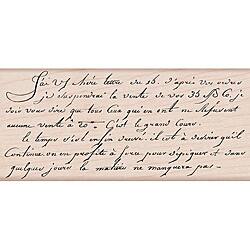 J'ai Vs chère lettre du 16. d'après vos ordres
je suspendrai la vente de vos 35 MB Co. je
dois vous dire que tous ceux qu'en ont me refusent
aucune vente à 20 — C'est le grand Cours.
le temps s'est enfin ouvert. il est à désirer qu'il
Continue on en profite à force pour dépiquer et dans
quelques jours la matière ne manquera pas -